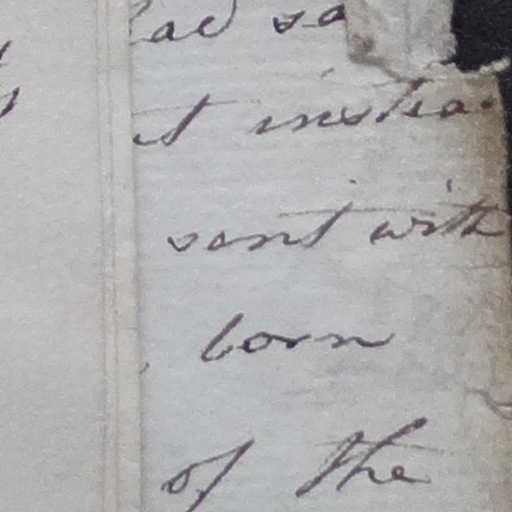 had so
t instea
sent with
born
of the